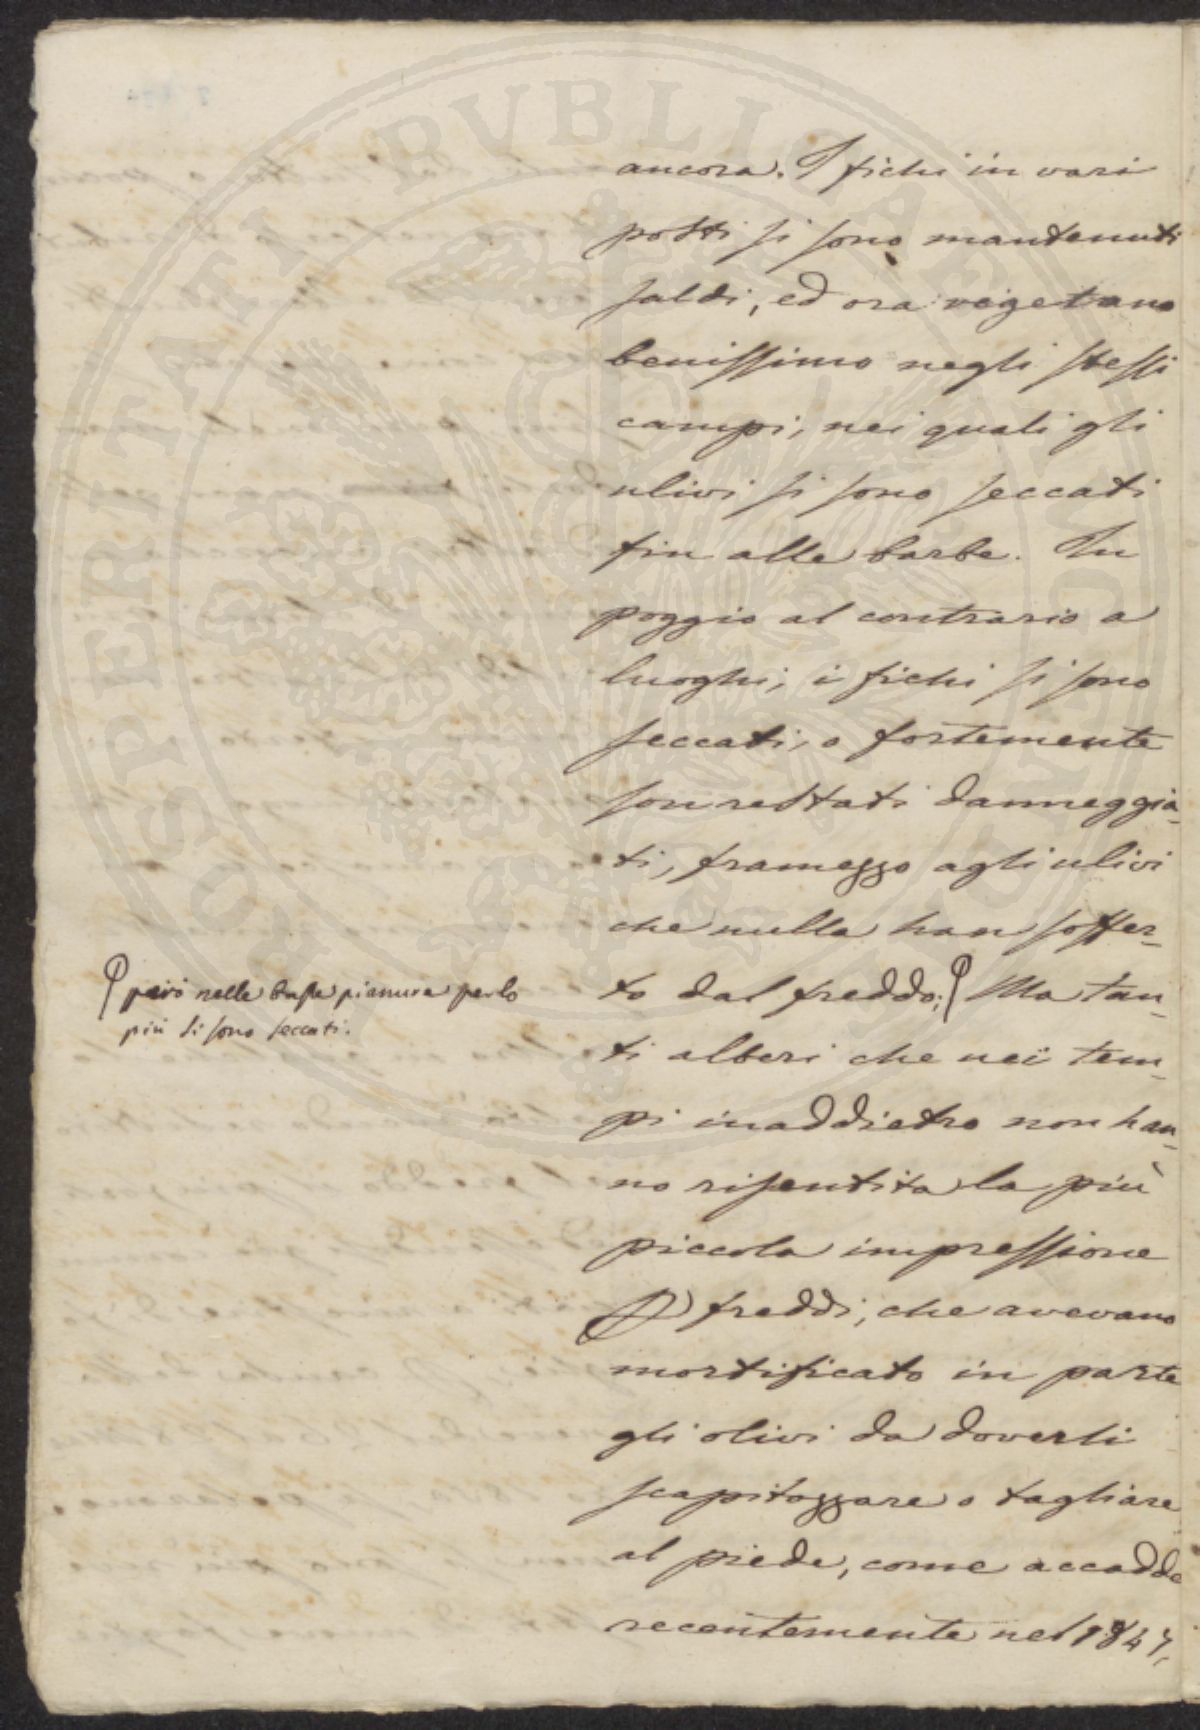 ancora. I fichi in vari
posti si sono mantenuti
saldi, ed ora vegetano
benissimo negli stessi
campi, nei quali gli
ulivi si sono seccati
fin alle barbe. In
poggio al contrario a
luoghi, i fichi si sono
seccati, o fortemente
son restati danneggia-
ti, framezzo agli ulivi
che nulla han soffer-
to dal freddo; Ma tan-
però nelle basse pianure perlo
più si sono seccati.
ti alberi che nei tem-
pi inaddietro non han-
no risentita la più
piccola impressione
freddi, che avevano
mortificato in parte
gli olivi da doverli
scapitozzare o tagliare
al piede, come accadde
recentemente nel 1847,
PROSPERITATI PVBLICAE AVGENDAE